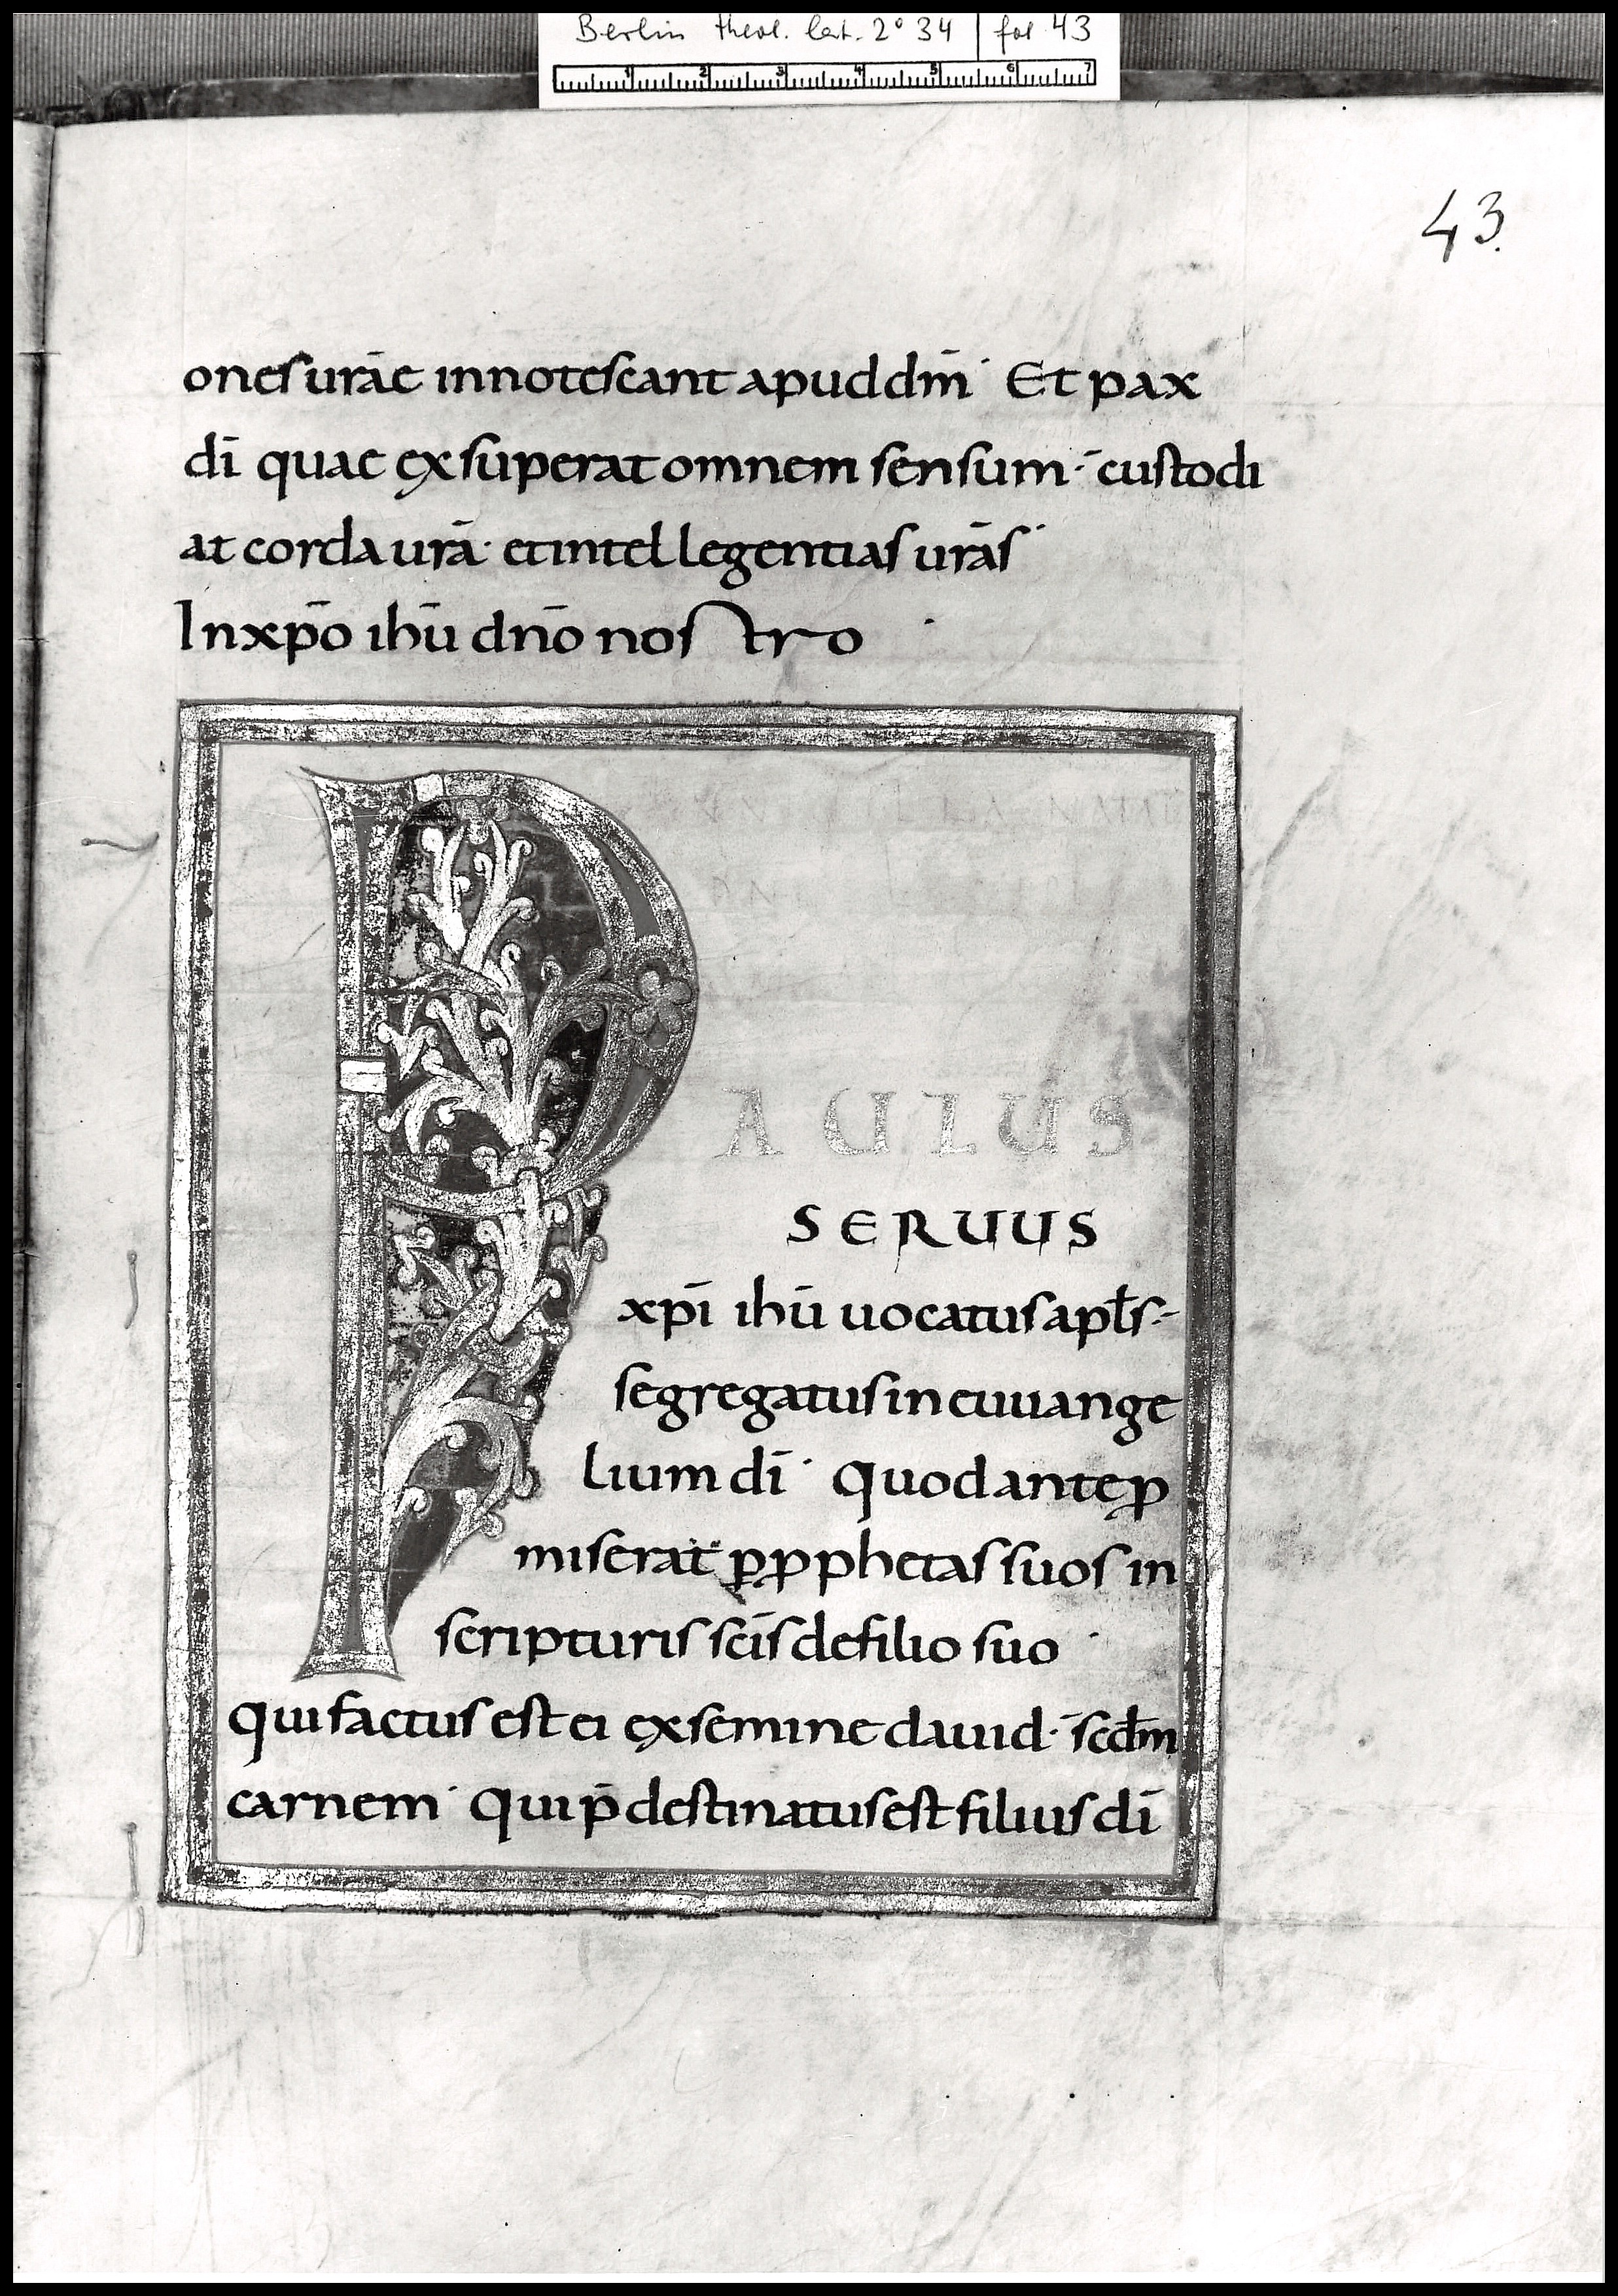 Berlin theol. lat. 2° 34 | fol 43
1 2 3 4 5 6 7
43.
ones urāe innotescant apud dm̄ · Et pax
dī quae exsuperat omnem sensum · custodi
at corda urā · et intellegentias urās ·
In xp̄o ihū dn̄o nostro ·
P
AULUS
SERUUS
xp̄ī ihū uocatus apl̄s ·
segregatus in euuange
lium dī · quod ante ꝓ
miserat · ꝑ ꝓphetas suos in
scripturis scīs de filio suo ·
qui factus est ei ex semine dauid · scđm
carnem · Qui p̄destinatus est filius dī